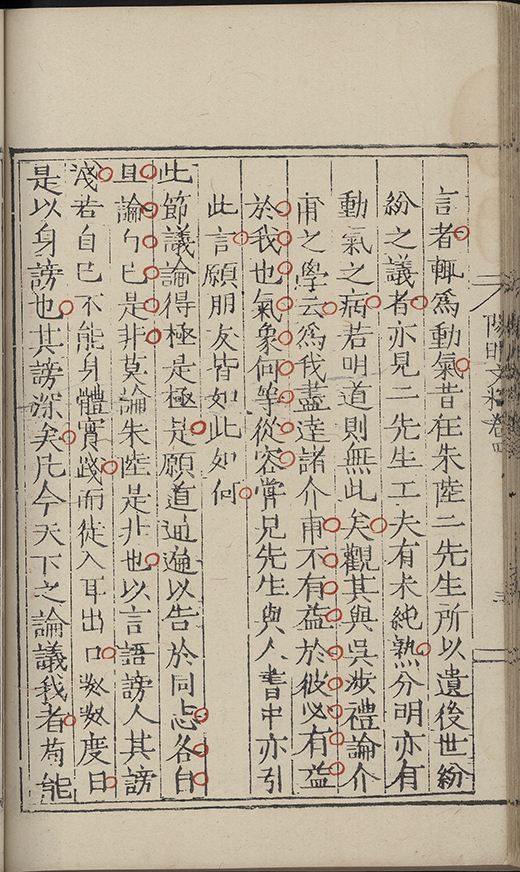 言者輒爲動氣昔在朱陸二先生所以遺後世紛
紛之議者亦見二先生工夫有未純熟分明亦有
動氣之病若明道則無此矣觀其與吳涉禮論介
甫之學云爲我盡達諸介甫不有益於彼必有益
於我也氣象何等從容甞見先生與人書中亦引
此言願朋友皆如此如何
此節議論得極是極是願道通遍以告於同志各自
且論自己是非莫論朱陸是非也以言語謗人其謗
淺若自己不能身體實踐而徒入耳出口呶呶度日
是以身謗也其謗深矣凡今天下之論議我者苟能
陽明文粹卷四